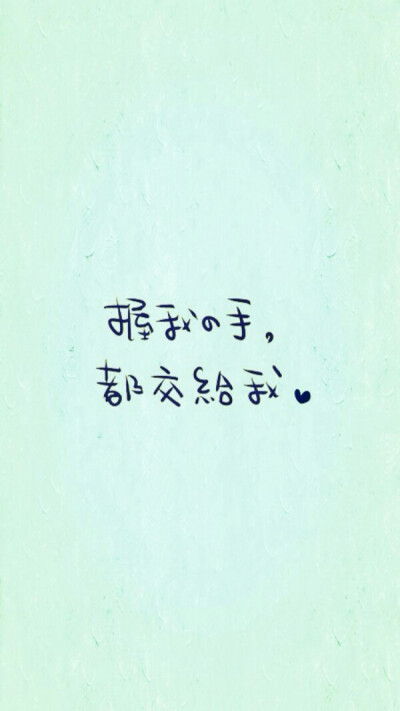 握我の手，
都交給我♥